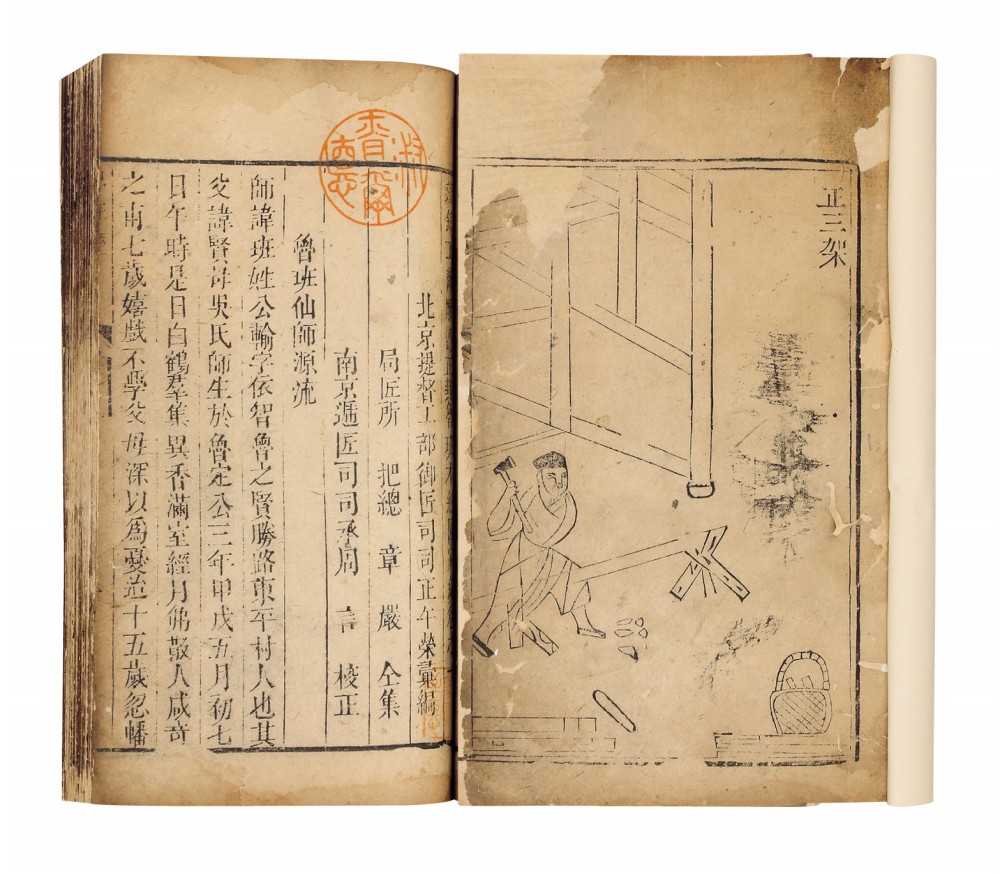 正三架
北京提督工部御匠司司正午榮彙編
局匠所 把總 章嚴 仝集
南京遞匠司司承周言校正
魯班仙師源流
師諱班姓公輸字依智魯之賢勝路東平村人也其
父諱賢母吳氏師生於魯定公三年甲戌五月初七
日午時是日白鶴羣集異香滿室經月弗散人咸奇
之甫七歲嬉戲不學父母深以為憂迨十五歲忽幡